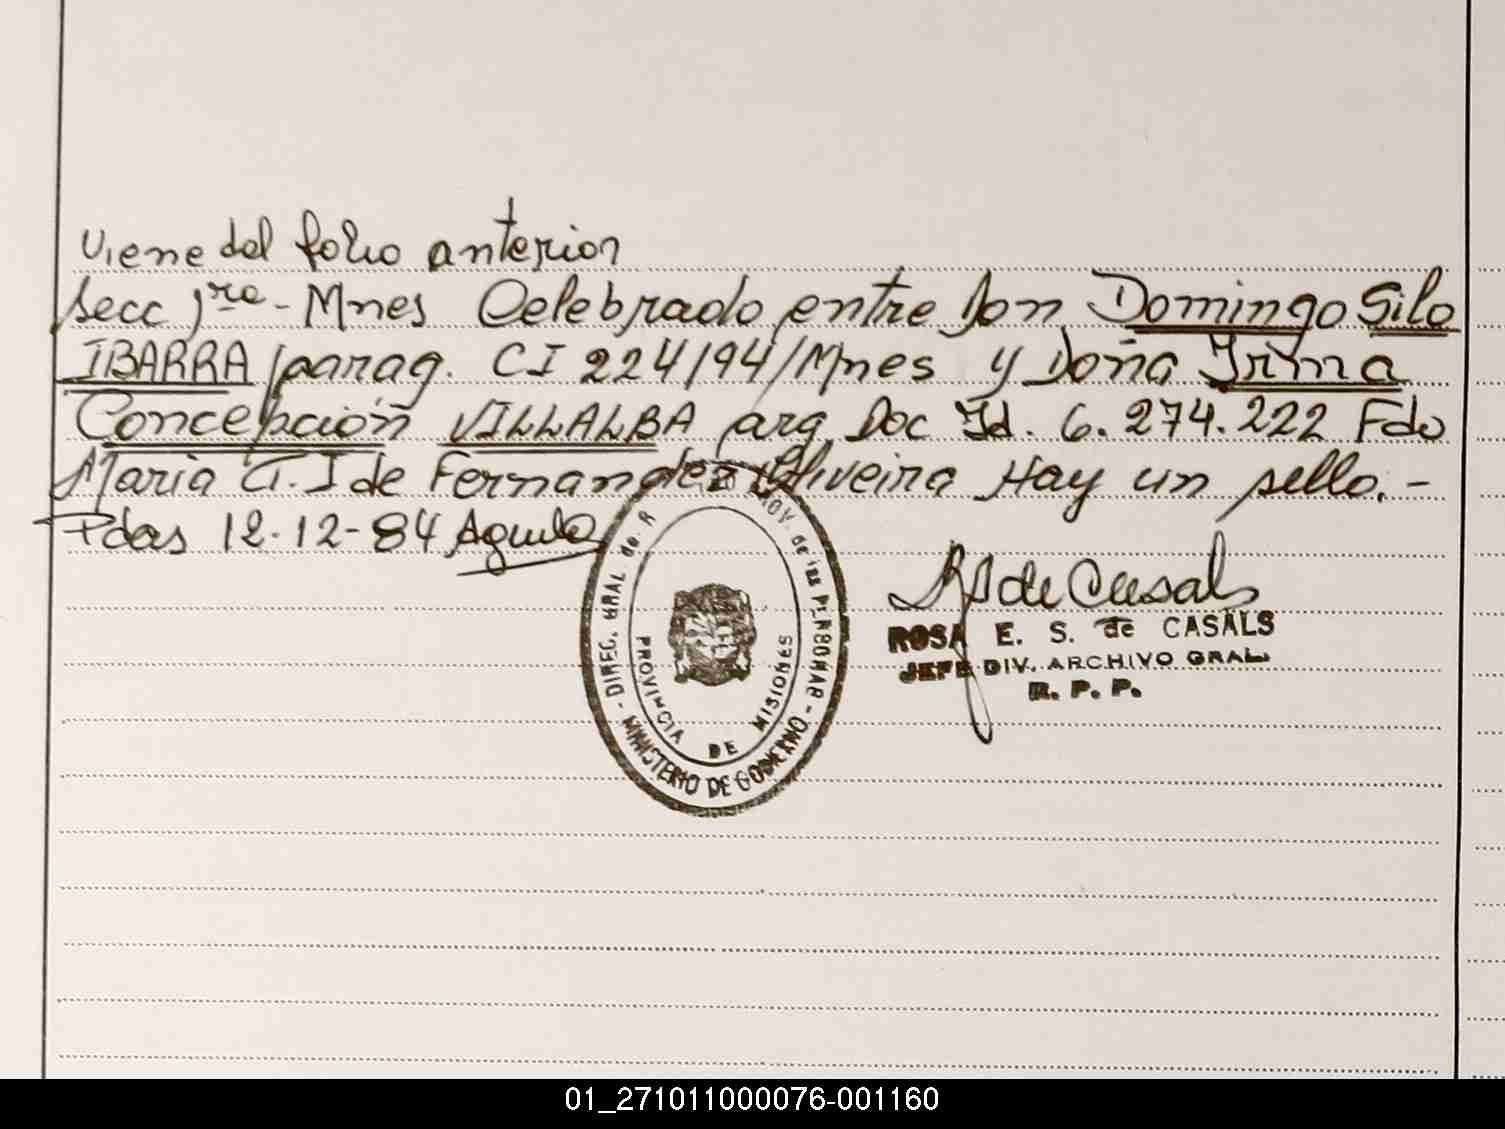 Viene del folio anterior
Secc 1ra - Mnes Celebrado entre Don Domingo Silo
IBARRA parag. CI 224194/Mnes y Doña Irma
Concepción VILLALBA arg. Doc Id. 6.274.222 Fdo
Maria T. I de Fernandez Oliveira Hay un sello. -
Pdas 12-12-84
DIREC. GRAL de R PROV. de las PERSONAS - MINISTERIO DE GOBIERNO -
PROVINCIA DE MISIONES
de Casals
ROSA E. S. de CASALS
JEFE DIV. ARCHIVO GRAL.
R. P. P.
01_271011000076-001160